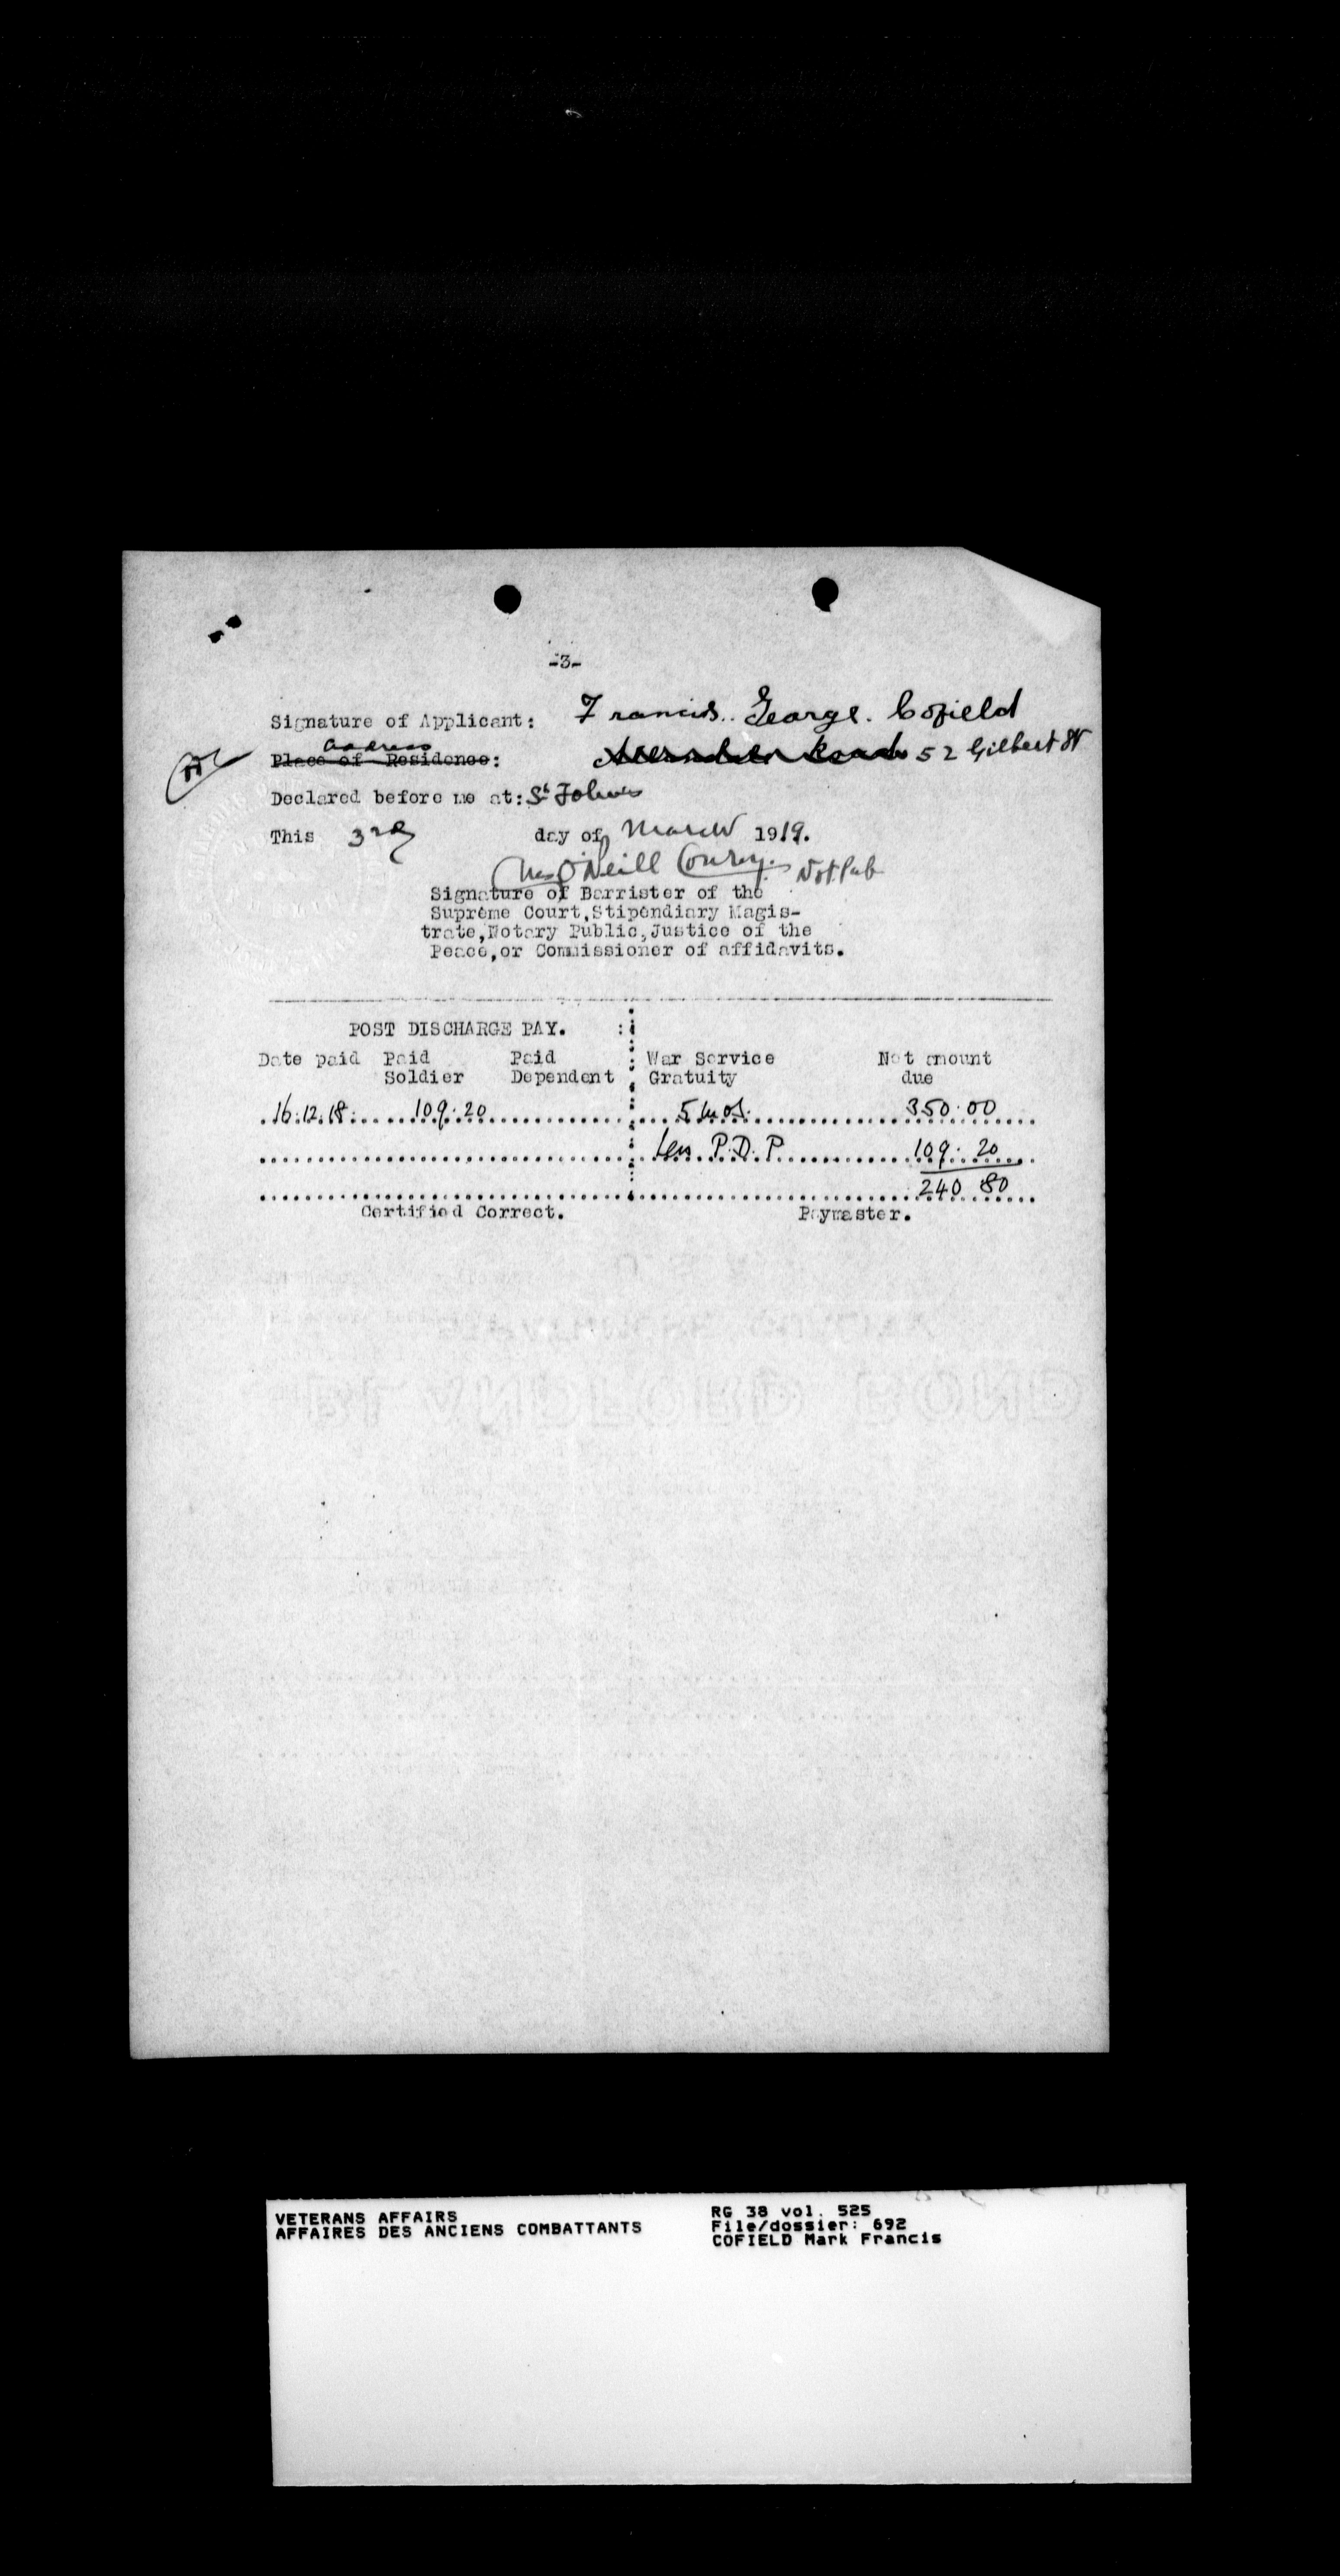 -3-
Signature of Applicant: Francis. George. Cofield
address
Place of Residence: Road 52 Gilbert St
Declared before me at: St Johns
This 3rd day of March 1919.
O'Neill Conroy. Not. Pub
Signature of Barrister of the
Supreme Court, Stipendiary Magis-
trate, Notary Public, Justice of the
Peace, or Commissioner of affidavits.
POST DISCHARGE PAY.
Date paid Paid Paid War Service Net amount
Soldier Dependent Gratuity due
16.12.18. 109.20 5 mos. 350.00
Less P.D.P 109.20
240 80
Certified Correct. Paymaster.
BLANDFORD BOND
VETERANS AFFAIRS RG 38 vol. 525
AFFAIRES DES ANCIENS COMBATTANTS File/dossier: 692
COFIELD Mark Francis